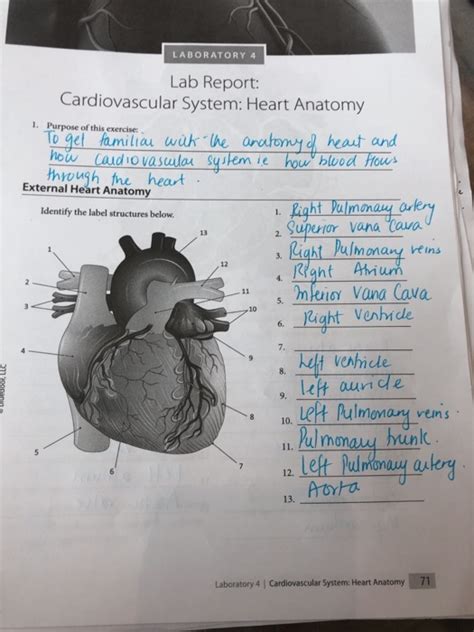 LABORATORY 4
Lab Report:
Cardiovascular System: Heart Anatomy
1. Purpose of this exercise:
To get familiar with the anatomy of heart and
how cardiovascular system ie how blood flows
through the heart.
External Heart Anatomy
Identify the label structures below.
1. Right Pulmonary artery
2. Superior vana Cava
3. Right Pulmonary veins
4. Right Atrium
5. Inferior Vana Cava
6. Right Ventricle
7.
8. Left ventricle
9. left auricle
10. Left Pulmonary veins.
11. Pulmonary trunk.
12. Left Pulmonary artery.
13. Aorta
1
2
3
4
5
6
7
8
9
10
11
12
13
Laboratory 4 | Cardiovascular System: Heart Anatomy 71